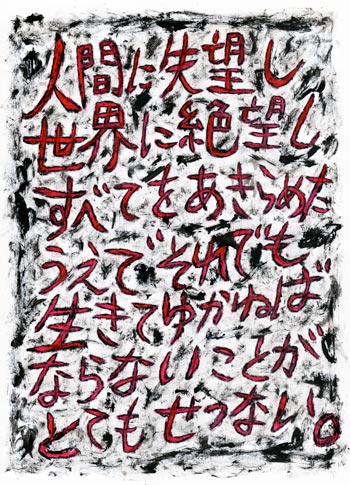 人間に失望し
世界に絶望し
すべてをあきらめた
うえでそれでも
生きてゆかねば
ならないことが
とてもせつない。